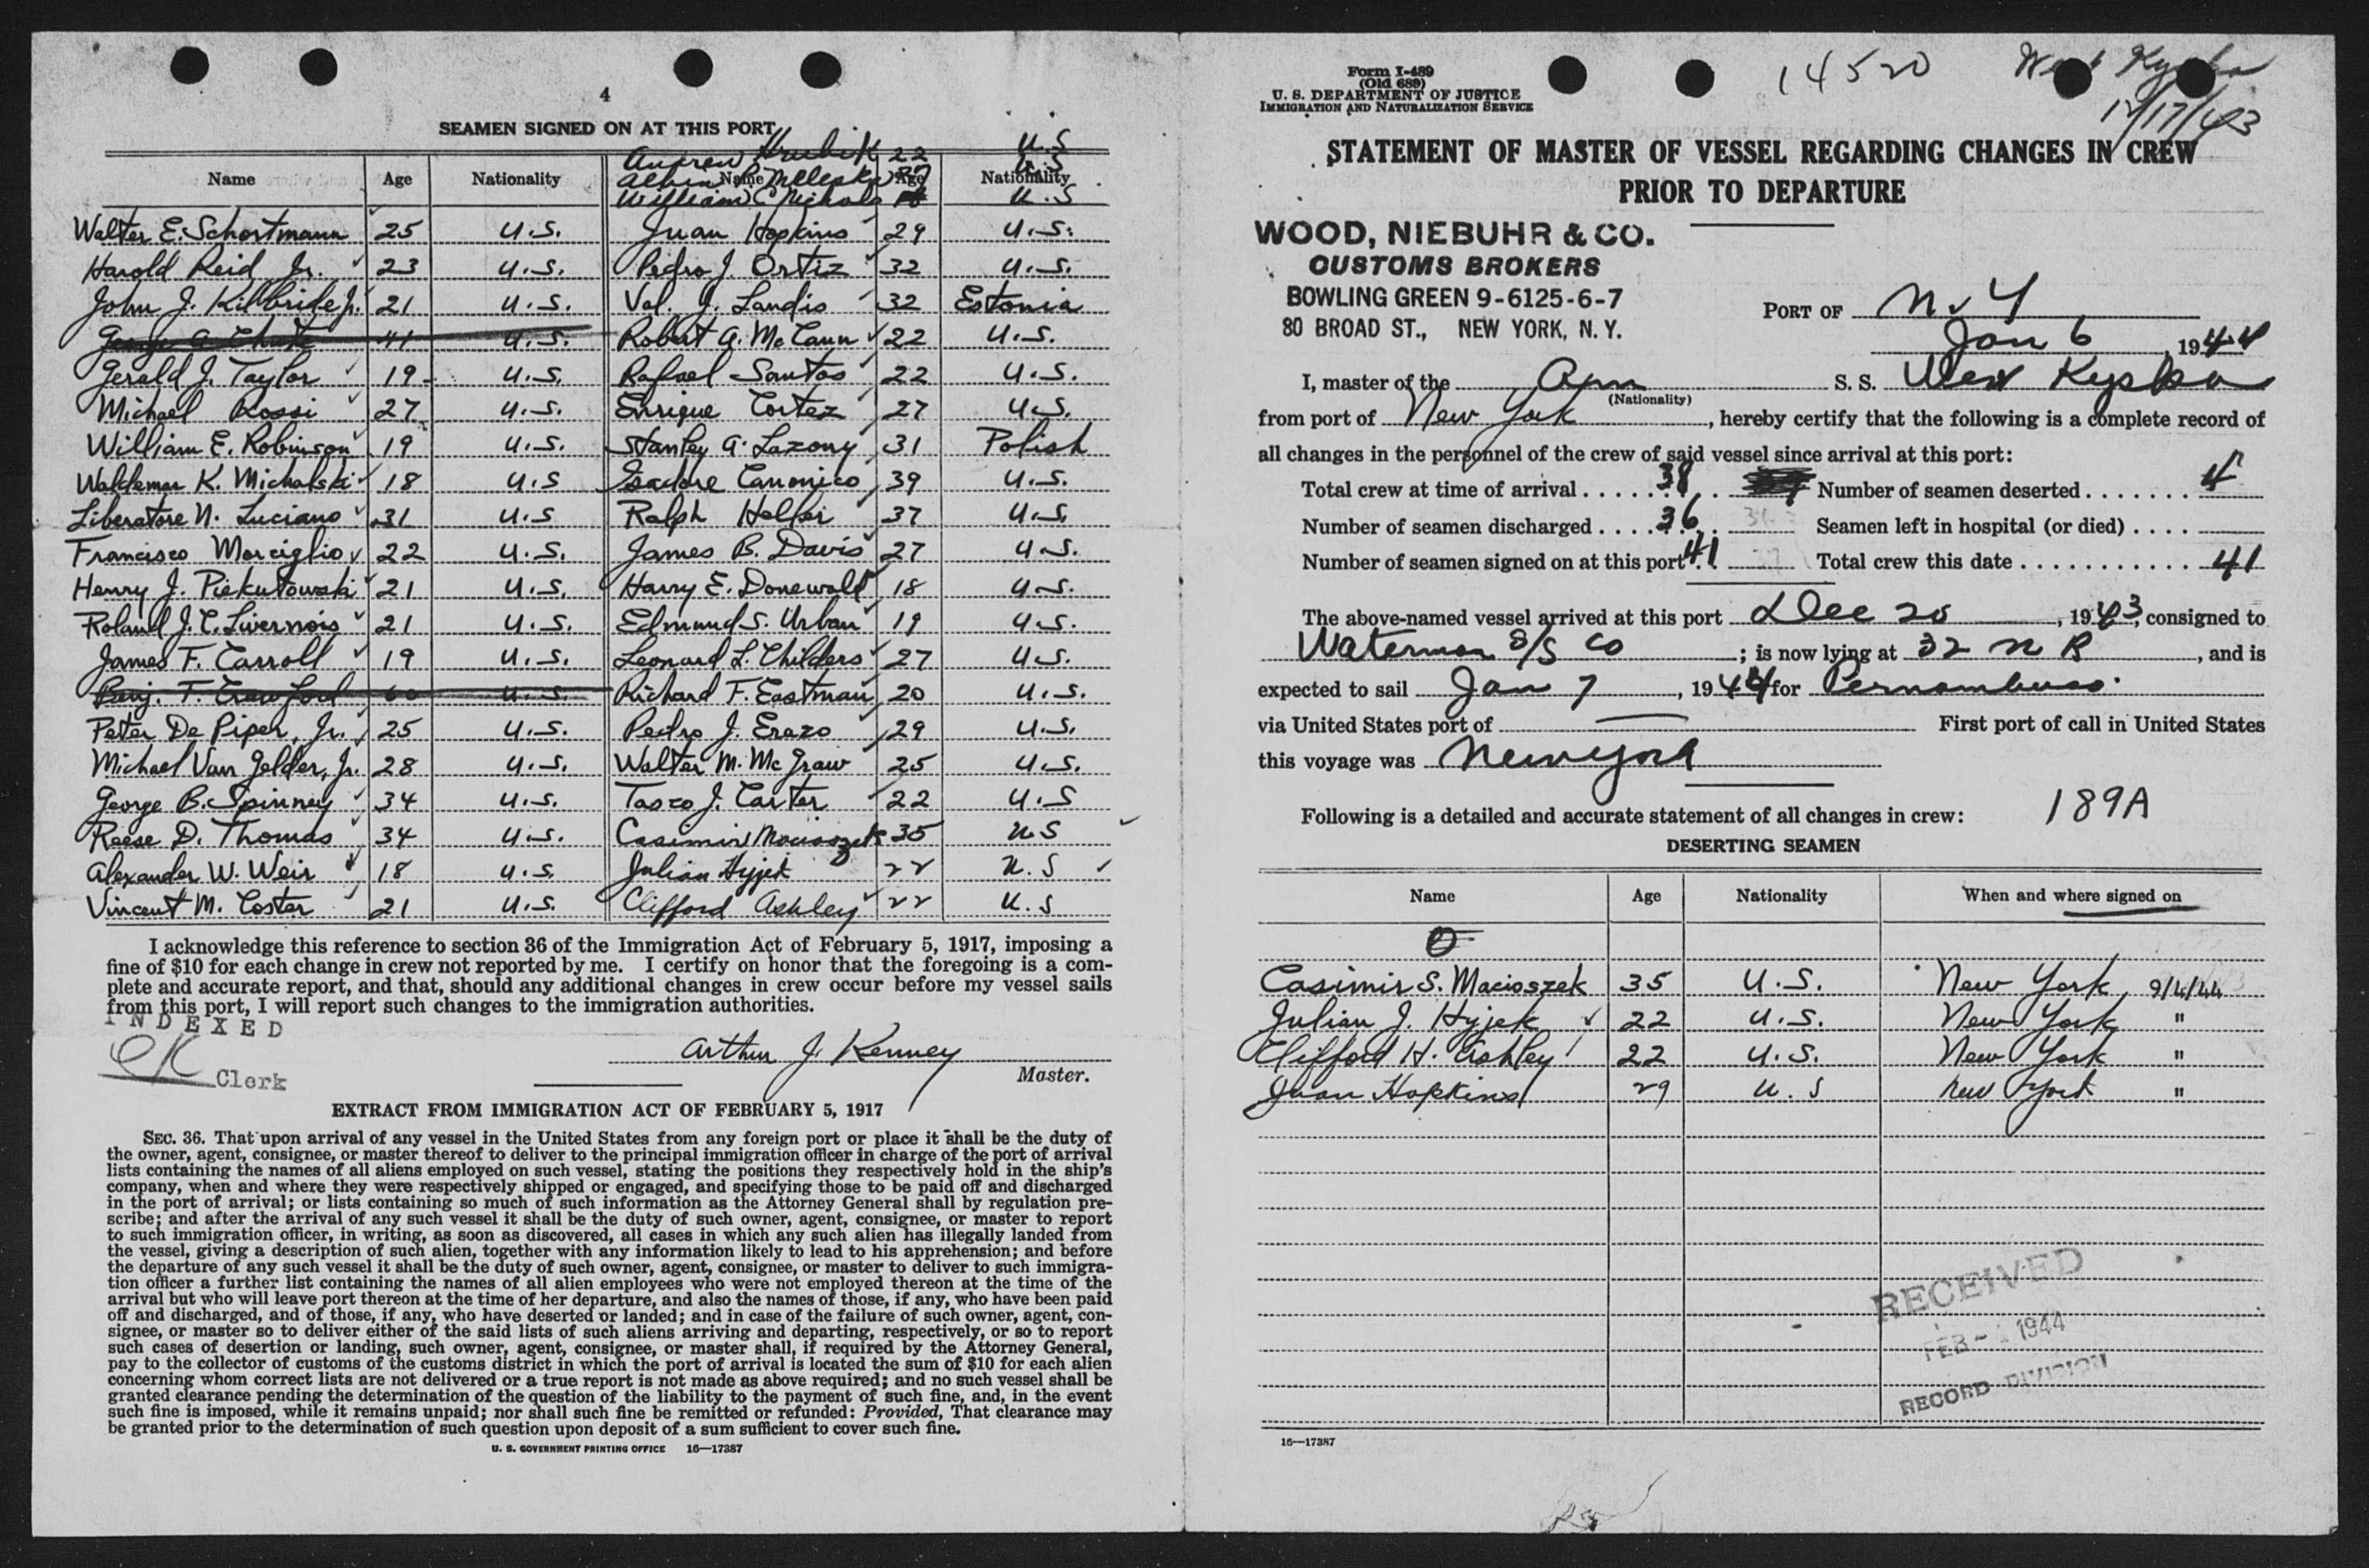 4
SEAMEN SIGNED ON AT THIS PORT
Name Age Nationality
Walter E. Schortmann 25 U.S.
Harold Reid Jr. 23 U.S.
John J. Killbride Jr. 21 U.S.
41 U.S.
Gerald J. Taylor 19 U.S.
Michael Rossi 27 U.S.
William E. Robinson 19 U.S.
Waldemar K. Michalski 18 U.S
Liberatore N. Luciano 31 U.S
Francisco Marciglio 22 U.S.
Henry J. Piekutowski 21 U.S.
Roland J. C. Livernois 21 U.S.
James F. Carroll 19 U.S.
Benj. T. Crawford 60 U.S.
Peter De Piper, Jr. 25 U.S.
Michael Van Gelder, Jr. 28 U.S.
George B. Spinney 34 U.S.
Reese D. Thomas 34 U.S.
Alexander W. Weir 18 U.S.
Vincent M. Coster 21 U.S.
Andrew Hrubik 22 U.S
Albin U.S
William C Nichols U.S
Name Age Nationality
Juan Hopkins 29 U.S.
Pedro J. Ortiz 32 U.S.
Val. J. Landis 32 Estonia
Robert A. McCann 22 U.S.
Rafael Santos 22 U.S.
Enrique Cortez 27 U.S.
Stanley A. Lazony 31 Polish
Isadore Canonico 39 U.S.
Ralph Heller 37 U.S.
James B. Davis 27 U.S.
Harry E. Donewald 18 U.S.
Edmund S. Urban 19 U.S.
Leonard L. Childers 27 U.S.
Richard F. Eastman 20 U.S.
Pedro J. Erazo 29 U.S.
Walter M. McGraw 25 U.S.
Tasco J. Carter 22 U.S
Casimir Macioszek 35 U.S
Julian Hyjek 22 U.S
Clifford Ashley 22 U.S
I acknowledge this reference to section 36 of the Immigration Act of February 5, 1917, imposing a
fine of $10 for each change in crew not reported by me. I certify on honor that the foregoing is a com-
plete and accurate report, and that, should any additional changes in crew occur before my vessel sails
from this port, I will report such changes to the immigration authorities.
INDEXED
Arthur J. Kenney
Clerk
Master.
EXTRACT FROM IMMIGRATION ACT OF FEBRUARY 5, 1917
SEC. 36. That upon arrival of any vessel in the United States from any foreign port or place it shall be the duty of
the owner, agent, consignee, or master thereof to deliver to the principal immigration officer in charge of the port of arrival
lists containing the names of all aliens employed on such vessel, stating the positions they respectively hold in the ship's
company, when and where they were respectively shipped or engaged, and specifying those to be paid off and discharged
in the port of arrival; or lists containing so much of such information as the Attorney General shall by regulation pre-
scribe; and after the arrival of any such vessel it shall be the duty of such owner, agent, consignee, or master to report
to such immigration officer, in writing, as soon as discovered, all cases in which any such alien has illegally landed from
the vessel, giving a description of such alien, together with any information likely to lead to his apprehension; and before
the departure of any such vessel it shall be the duty of such owner, agent, consignee, or master to deliver to such immigra-
tion officer a further list containing the names of all alien employees who were not employed thereon at the time of the
arrival but who will leave port thereon at the time of her departure, and also the names of those, if any, who have been paid
off and discharged, and of those, if any, who have deserted or landed; and in case of the failure of such owner, agent, con-
signee, or master so to deliver either of the said lists of such aliens arriving and departing, respectively, or so to report
such cases of desertion or landing, such owner, agent, consignee, or master shall, if required by the Attorney General,
pay to the collector of customs of the customs district in which the port of arrival is located the sum of $10 for each alien
concerning whom correct lists are not delivered or a true report is not made as above required; and no such vessel shall be
granted clearance pending the determination of the question of the liability to the payment of such fine, and, in the event
such fine is imposed, while it remains unpaid; nor shall such fine be remitted or refunded: Provided, That clearance may
be granted prior to the determination of such question upon deposit of a sum sufficient to cover such fine.
U. S. GOVERNMENT PRINTING OFFICE 16—17387
Form I-489
(Old 689)
U. S. DEPARTMENT OF JUSTICE
IMMIGRATION AND NATURALIZATION SERVICE
14520
West Kyska
12/17/43
STATEMENT OF MASTER OF VESSEL REGARDING CHANGES IN CREW
PRIOR TO DEPARTURE
WOOD, NIEBUHR & CO.
CUSTOMS BROKERS
BOWLING GREEN 9-6125-6-7
80 BROAD ST., NEW YORK, N. Y.
PORT OF N.Y
Jan 6, 1944
I, master of the Am S. S. West Kyska
(Nationality)
from port of New York, hereby certify that the following is a complete record of
all changes in the personnel of the crew of said vessel since arrival at this port:
Total crew at time of arrival 38 Number of seamen deserted 4
Number of seamen discharged 36 Seamen left in hospital (or died)
Number of seamen signed on at this port 41 Total crew this date 41
The above-named vessel arrived at this port Dec 20, 1943, consigned to
Waterman S/S Co; is now lying at 32 N R, and is
expected to sail Jan 7, 1944 for Pernambuco.
via United States port of — First port of call in United States
this voyage was New York
Following is a detailed and accurate statement of all changes in crew: 189A
DESERTING SEAMEN
Name Age Nationality When and where signed on
O
Casimir S. Macioszek 35 U.S. New York 9/4/44
Julian J. Hyjek 22 U.S. New York "
Clifford H. Ashley 22 U.S. New York "
Juan Hopkins 29 U.S New York "
RECEIVED
FEB - 1944
RECORD DIVISION
16—17387